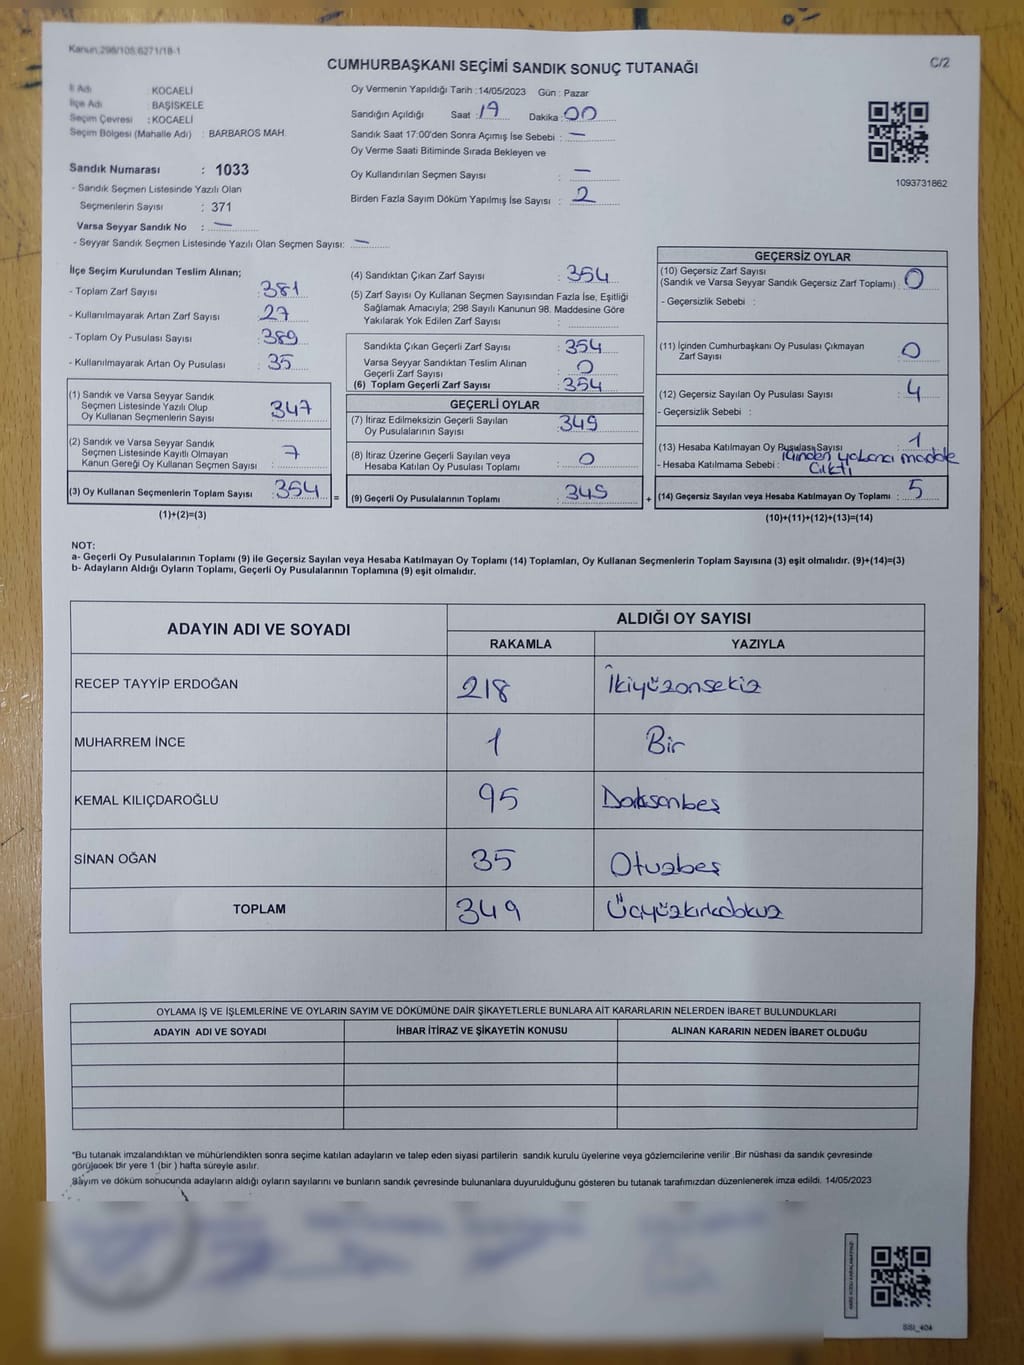 Kanun:298/105;6271/18-1
CUMHURBAŞKANI SEÇİMİ SANDIK SONUÇ TUTANAĞI
C/2
İl Adı : KOCAELİ
İlçe Adı : BAŞİSKELE
Seçim Çevresi : KOCAELİ
Seçim Bölgesi (Mahalle Adı) : BARBAROS MAH.
Sandık Numarası : 1033
- Sandık Seçmen Listesinde Yazılı Olan
Seçmenlerin Sayısı : 371
Varsa Seyyar Sandık No : —
- Seyyar Sandık Seçmen Listesinde Yazılı Olan Seçmen Sayısı: —
Oy Vermenin Yapıldığı Tarih :14/05/2023 Gün : Pazar
Sandığın Açıldığı Saat : 17 Dakika : 00
Sandık Saat 17:00'den Sonra Açımış İse Sebebi : —
Oy Verme Saati Bitiminde Sırada Bekleyen ve
Oy Kullandırılan Seçmen Sayısı : —
Birden Fazla Sayım Döküm Yapılmış İse Sayısı : 2
1093731862
İlçe Seçim Kurulundan Teslim Alınan;
- Toplam Zarf Sayısı : 381
- Kullanılmayarak Artan Zarf Sayısı : 27
- Toplam Oy Pusulası Sayısı : 389
- Kullanılmayarak Artan Oy Pusulası : 35
(1) Sandık ve Varsa Seyyar Sandık
Seçmen Listesinde Yazılı Olup
Oy Kullanan Seçmenlerin Sayısı : 347
(2) Sandık ve Varsa Seyyar Sandık
Seçmen Listesinde Kayıtlı Olmayan
Kanun Gereği Oy Kullanan Seçmen Sayısı : 7
(3) Oy Kullanan Seçmenlerin Toplam Sayısı : 354
(1)+(2)=(3)
=
(4) Sandıktan Çıkan Zarf Sayısı : 354
(5) Zarf Sayısı Oy Kullanan Seçmen Sayısından Fazla İse, Eşitliği
Sağlamak Amacıyla; 298 Sayılı Kanunun 98. Maddesine Göre
Yakılarak Yok Edilen Zarf Sayısı :
Sandıkta Çıkan Geçerli Zarf Sayısı : 354
Varsa Seyyar Sandıktan Teslim Alınan
Geçerli Zarf Sayısı : 0
(6) Toplam Geçerli Zarf Sayısı : 354
GEÇERLİ OYLAR
(7) İtiraz Edilmeksizin Geçerli Sayılan
Oy Pusulalarının Sayısı : 349
(8) İtiraz Üzerine Geçerli Sayılan veya
Hesaba Katılan Oy Pusulası Toplamı : 0
(9) Geçerli Oy Pusulalarının Toplamı : 349
+
GEÇERSİZ OYLAR
(10) Geçersiz Zarf Sayısı
(Sandık ve Varsa Seyyar Sandık Geçersiz Zarf Toplamı) : 0
- Geçersizlik Sebebi :
(11) İçinden Cumhurbaşkanı Oy Pusulası Çıkmayan
Zarf Sayısı : 0
(12) Geçersiz Sayılan Oy Pusulası Sayısı : 4
- Geçersizlik Sebebi :
(13) Hesaba Katılmayan Oy Pusulası Sayısı : 1
- Hesaba Katılmama Sebebi : içinden yabancı madde
Çıktı
(14) Geçersiz Sayılan veya Hesaba Katılmayan Oy Toplamı : 5
(10)+(11)+(12)+(13)=(14)
NOT:
a- Geçerli Oy Pusulalarının Toplamı (9) ile Geçersiz Sayılan veya Hesaba Katılmayan Oy Toplamı (14) Toplamları, Oy Kullanan Seçmenlerin Toplam Sayısına (3) eşit olmalıdır. (9)+(14)=(3)
b- Adayların Aldığı Oyların Toplamı, Geçerli Oy Pusulalarının Toplamına (9) eşit olmalıdır.
ADAYIN ADI VE SOYADI
ALDIĞI OY SAYISI
RAKAMLA YAZIYLA
RECEP TAYYİP ERDOĞAN 218 İkiyüzonsekiz
MUHARREM İNCE 1 Bir
KEMAL KILIÇDAROĞLU 95 Doksanbeş
SİNAN OĞAN 35 Otuzbeş
TOPLAM 349 Üçyüzkırkdokuz
OYLAMA İŞ VE İŞLEMLERİNE VE OYLARIN SAYIM VE DÖKÜMÜNE DAİR ŞİKAYETLERLE BUNLARA AİT KARARLARIN NELERDEN İBARET BULUNDUKLARI
ADAYIN ADI VE SOYADI İHBAR İTİRAZ VE ŞİKAYETİN KONUSU ALINAN KARARIN NEDEN İBARET OLDUĞU
*Bu tutanak imzalandıktan ve mühürlendikten sonra seçime katılan adayların ve talep eden siyasi partilerin sandık kurulu üyelerine veya gözlemcilerine verilir .Bir nüshası da sandık çevresinde
görülecek bir yere 1 (bir ) hafta süreyle asılır.
Sayım ve döküm sonucunda adayların aldığı oyların sayılarını ve bunların sandık çevresinde bulunanlara duyurulduğunu gösteren bu tutanak tarafımızdan düzenlenerek imza edildi. 14/05/2023
SSI_404